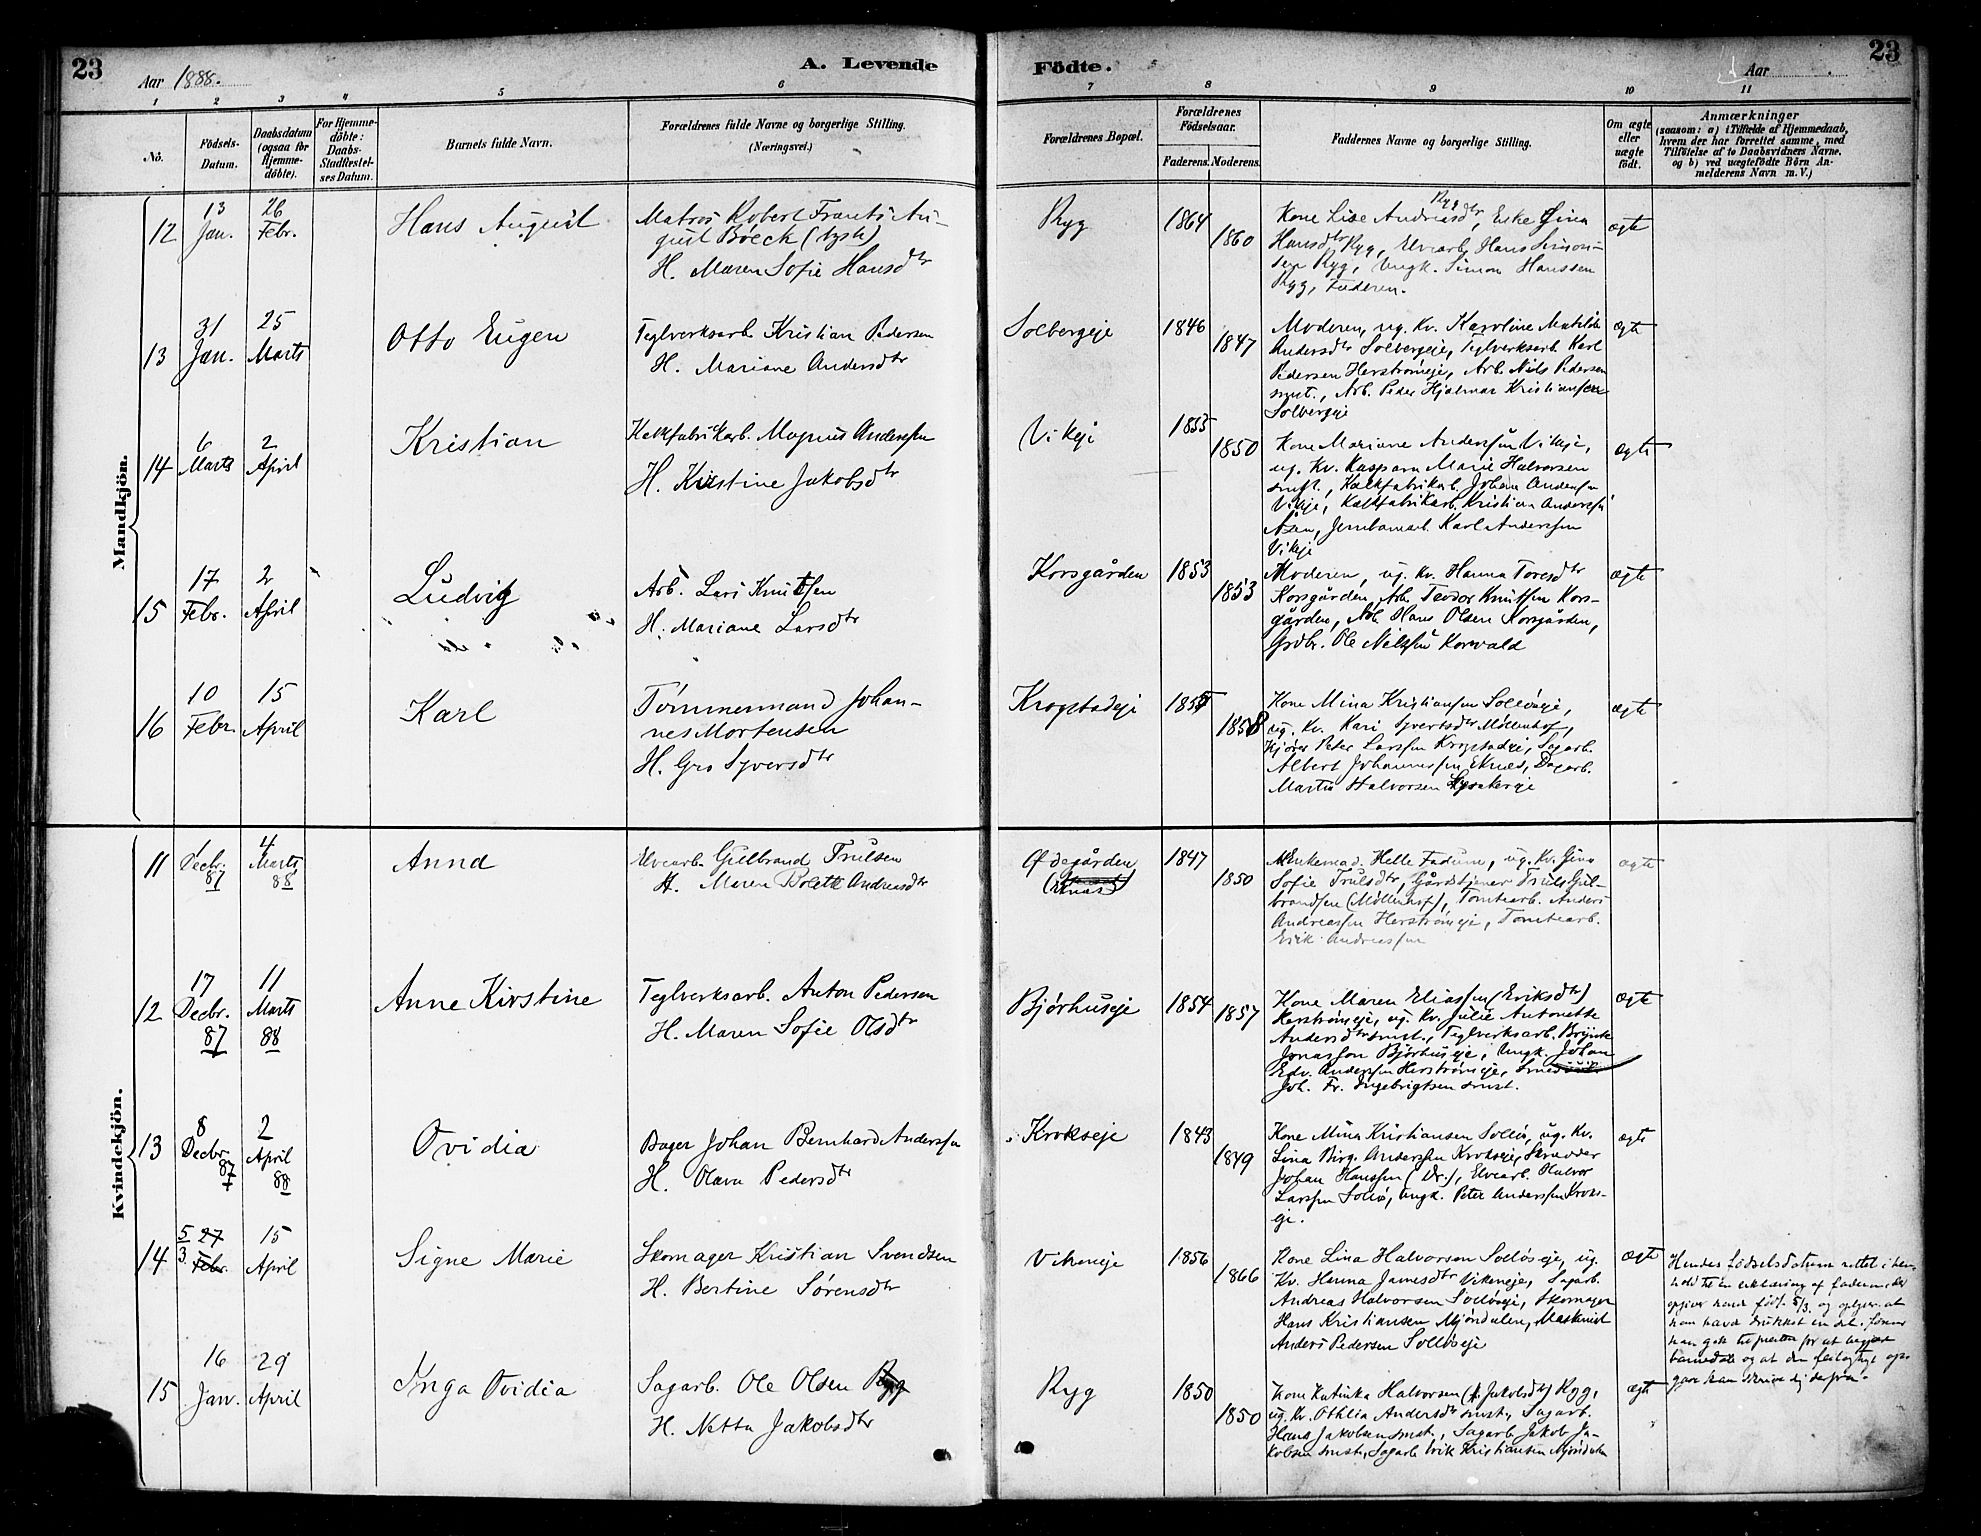 23
Aar 1888.
A. Levende
Födte.
Aar
23
1
2
3
4
5
6
7
8
9
10
11
No.
Födsels-
Datum.
Daabsdatum
(ogsaa for
Hjemme-
döbte).
For Hjemme-
döbte:
Daabs-
Stadfæstel-
ses Datum.
Barnets fulde Navn.
Forældrenes fulde Navne og borgerlige Stilling.
(Næringsvei.)
Forældrenes Bopæl.
Forældrenes
Födselsaar.
Faderens.
Moderens.
Faddernes Navne og borgerlige Stilling.
Om ægte
eller
uægte
födt.
Anmærkninger
(saasom: a) i Tilfælde af Hjemmedaab,
hvem der har forrettet samme, med
Tilföielse af to Daabsvidners Navne,
og b) ved uægtefödte Börn An-
melderens Navn m. V.)
Mandkjön.
12
13
Jan.
26
Febr.
Hans August
Matros Robert Frants Au-
gust Böeck (tysk)
H. Maren Sofie Hansdtr
Ryg
1864
1860
Ryg
Kone Lise Andreasdtr, Enke Gina
Hansdtr Ryg, Elvearb. Hans Simon-
sen Ryg, Ungk. Simon Hanssen
Ryg, Faderen.
ægte
13
31
Jan.
25
Marts
Otto Eugen
Teglverksarb. Kristian Pedersen
H. Mariane Andersdtr
Solbergeje
1846
1847
Moderen, ug. Kv. Karoline Matilde
Andersdtr Solbergeje, Teglverksarb. Karl
Pedersen Herstrømeje, Arb. Nils Pedersen
smst., Arb. Peder Hjalmar Kristiansen
Solbergeje
ægte
14
6
Marts
2
April
Kristian
Kalkfabrikarb. Magnus Anderssen
H. Kirstine Jakobsdtr
Vikeje
1855
1850
Kone Mariane Anderssen Vikeje,
ug. Kv. Kaspara Marie Halvorsen
smst., Kalkfabrikarb. Johan Anderssen
Vikeje, Kalkfabrikarb. Kristian Anderssen
Åsen, Jernbanearb. Karl Anderssen
Vikeje
ægte
15
17
Febr.
2
April
Ludvig
Arb. Lars Knutsen
H. Mariane Larsdtr
Korsgården
1853
1853
Moderen, ug. Kv. Hanna Toresdtr
Korsgården, Arb. Teodor Knutsen Kors-
gården, Arb. Hans Olsen Korsgården,
Grdbr. Ole Nilssen Korvald
ægte
16
10
Febr.
15
April
Karl
Tømmermand Johan-
nes Mortensen
H. Gro Syversdtr
Krogstadeje
1855
1858
Kone Mina Kristiansen Solløseje,
ug. Kv. Kari Syvertsdtr Møllenhof,
Kjører Peter Larssen Krogstadeje, Sagarb.
Albert Johannessen Eknes, Dagarb.
Martin Halvorsen
ægte
Kvindekjön.
11
Decbr.
87
4
Marts
88
Anna
Elvearb. Gulbrand Trulsen
H. Maren Bolette Andreasdtr
Ødegården
1847
1850
Enkemad. Helle Fadum, ug. Kv. Gina
Sofie Trulsdtr, Gårdstjener Truls Gul-
brandsen (Møllenhof), Tomtearb. Anders
Andreassen Herstrømeje, Tomtearb.
Erik Andreassen
ægte
12
17
Decbr.
87
11
Marts
88
Anne Kirstine
Teglverksarb. Anton Pedersen
H. Maren Sofie Olsdtr
Bjørhuseje
1854
1857
Kone Maren Eliassen (Eriksdtr)
Herstrømeje, ug. Kv. Julie Antonette
Andersdtr smst., Teglverksarb. Brynte
Jonassen Bjørhuseje, Ungk. Johan
Edv. Anderssen Herstrømeje,
Joh. Fr. Ingebrigtsen smst.
ægte
13
8
Decbr.
87
2
April
88
Ovidia
Bager Johan Bernhard Anderssen
H. Olava Pedersdtr
Krokseje
1843
1849
Kone Mina Kristiansen Solløs, ug. Kv.
Lina Birg. Anderssen Krokseje, Skrædder
Johan Hanssen (Dr.), Elvearb. Halvor
Larssen Solløs, Ungk. Peter Anderssen Kroks-
eje.
ægte
14
5 27
3. Febr.
15
April
Signe Marie
Skomager Kristian Svendsen
H. Bertine Sørensdtr
Vikeneje
1856
1866
Kone Lina Halvorsen Solløseje, ug.
Kv. Hanna Jamesdtr Vikeneje, Sagarb.
Andreas Halvorsen Solløseje, Skomager
Hans Kristiansen Mjøndalen, Maskinist
Anders Pedersen Solløseje
ægte
Hendes Fødselsdatum rettet i hen-
hold til en erklæring af faderen, der
opgiver hende født 5/3. og oplyser at
han havde drukket en del, førend
han gik til præsten for at begjære
barnedåb og at den feilagtige op-
gave kan skrive sig derfra.
15
16
Jan.
29
April
Inga Ovidia
Sagarb. Ole Olsen Ryg
H. Netta Jakobsdtr
Ryg
1850
1850
Kone Katinka Halvorsen (f. Jakobsdtr) Ryg,
ug. Kv. Othlia Andersdtr smst., Sagarb.
Hans Jakobsen smst., Sagarb. Jakob Ja-
kobsen smst., Sagarb. Erik Kristiansen Mjøndalen
ægte